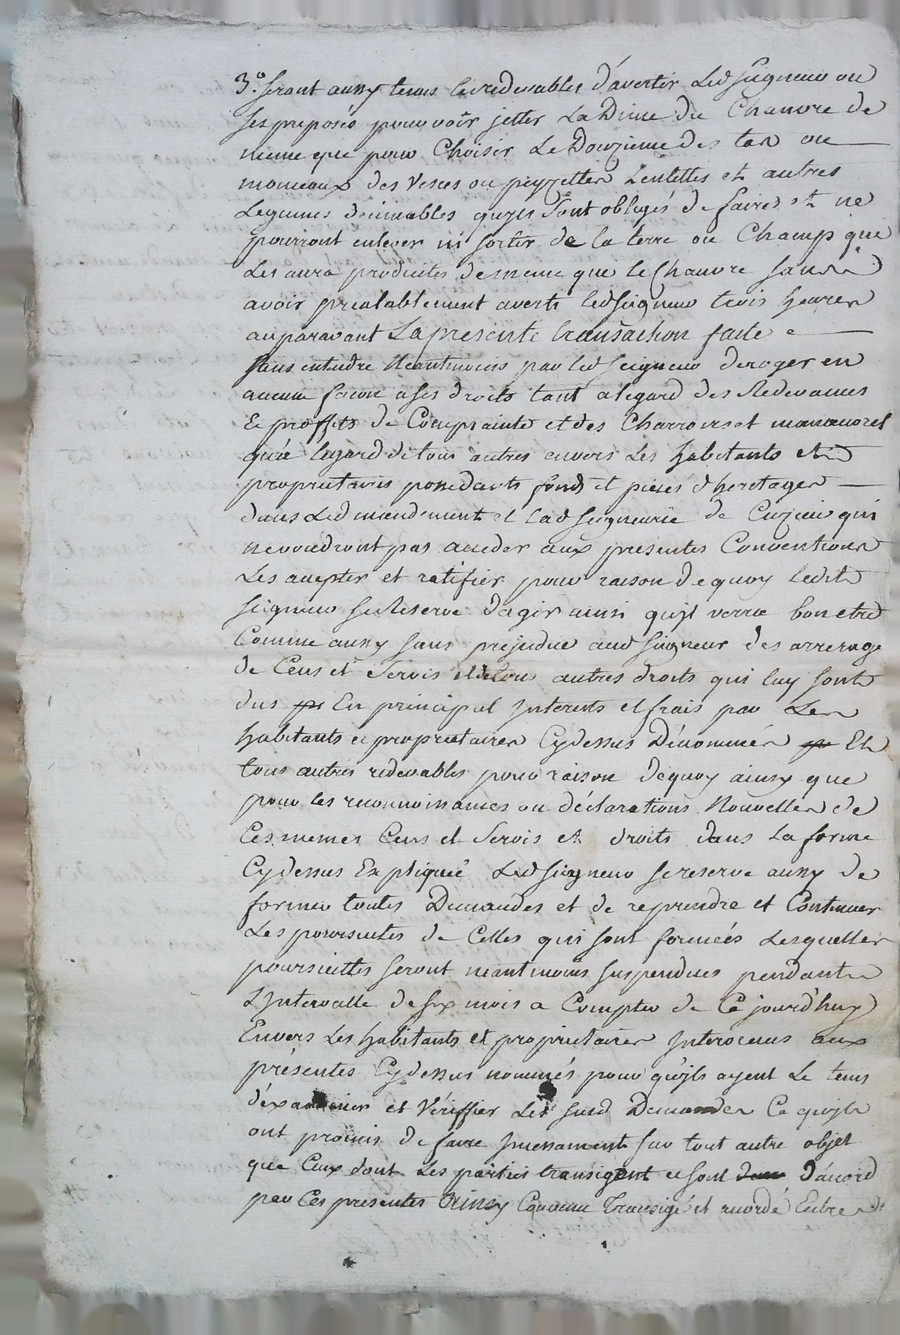 3.° seront aussy tenus les redevables d'avertir Led Seigneur ou
ses preposés pour voir jetter La Dime du Chanvre de
meme que pour Choisir Le Douzieme des tas ou
monceaux des Vesces ou peyzettes Lentilles et autres
Legumes deimables quyls sont obligés de faire et ne
pourront enlever ni sortir de la terre ou Champ que
Les aura produites de meme que le Chanvre sans
avoir prealablement averti led seigneur trois heures
auparavant La presente transaction faite
sans entendre Neantmoins par led Seigneur deroger en
aucune facon a ses droits tant a legard des Redevances
Et proffits de Complainte et des Charrois et manoeuvres
qu'a legard de tous autres envers Les habitants et
proprietaires possedants fonds et pieces d'heretages
dans Led mandement et lad Seigneurie de Curzieu qui
ne voudront pas acceder aux presentes Conventions
Les accepter et ratifier pour raison de quoy ledit
Seigneur se Reserve d'agir ainsi quyl verra bon etre
Comme aussy sans prejudice aud Seigneur des arrerage
de Cens et Servis et de tous autres droits qui luy sont
dus En principal Interets et frais par Les
habitants et proprietaires Cydessus Dénommés Et
tous autres redevables pour raison de quoy ainsy que
pour les reconnoissances ou déclarations Nouvelles de
Ces memes Cens et Servis et droits dans La forme
Cydessus Expliquée Led Seigneur se reserve aussy de
former toutes Demandes et de reprendre et Continuer
Les poursuites de Celles qui sont formées Lesquelles
poursuittes seront neantmoins suspendues pendant
L'Intervalle de six mois a Compter de Ce jourd'huy
Envers Les habitants et proprietaires Intervenus aux
présentes Cydessus nommés pour qu'jls ayent Le tems
d'éxaminer et Vériffier Les susd Demandes Ce qu'jls
ont promis de faire Incessament sur tout autre objet
que Ceux dont Les parties transigent et sont D'acord
par Ces presentes Ainsy Convenu Transigé et acordé Entre